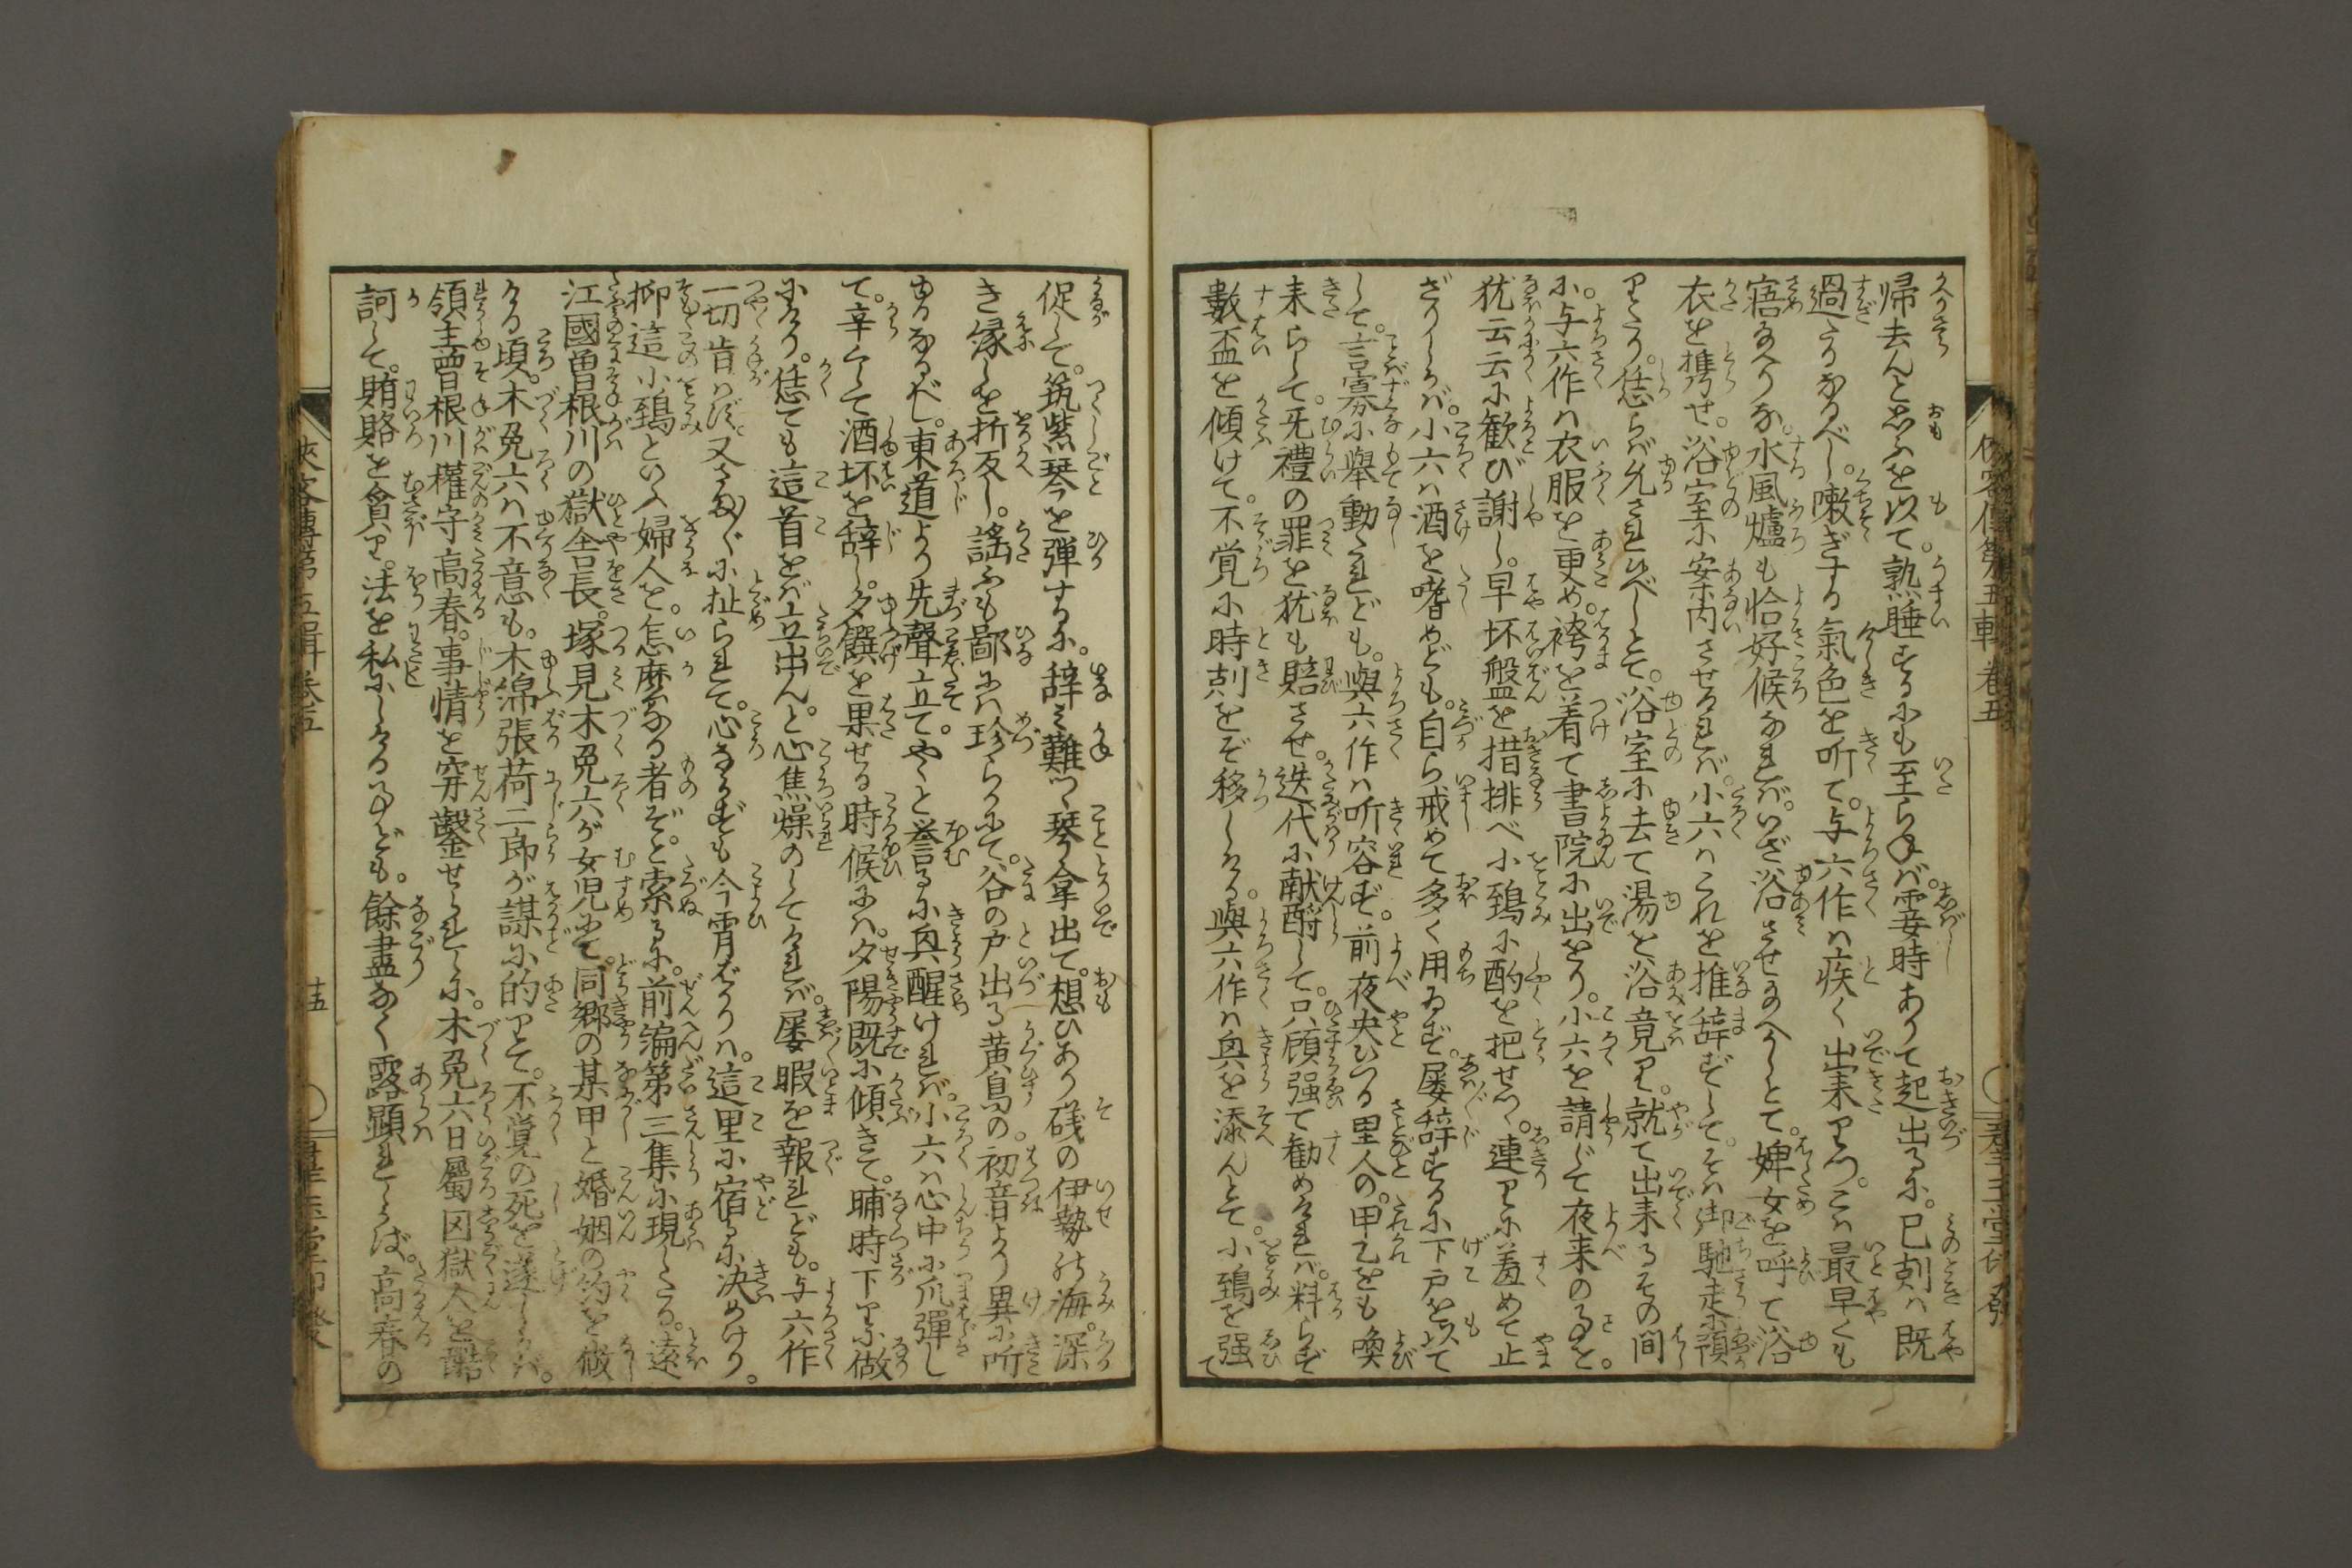 帰去んと思ふを以て。熟睡するにも至らねば。霎時ありて起出るに。巳剋は既
過たるなるべし。嗽ぎする氣色を听て。与六作は疾く出来りつ。こは最早くも
寤給へりな。水風爐も恰好候なれば。いざ浴させ給へかしとて。婢女を呼て浴
衣を携せ。浴室に案内させけれは。小六はこれを推辞ずして。そは御馳走に預
りたり。恁らば允され候べしとて。浴室に去て湯を浴竟り。就て出来るその間
に。与六作は衣服を更め。袴を着て書院に出をり。小六を請じて夜来の事を。
犹云云に歓び謝し。早坏盤を措排べ小鵐に酌を把せつ。連りに羞めて止
ざりしかば。小六は酒を嗜めども。自ら戒めて多く用ゐず。屡辞するに下戸を以て
して。言寡に舉動たれども。與六作は听容ず。前夜央ひつる里人の。甲乙をも喚
来らして。旡禮の罪を犹も賠させ。迭代に献酬して。只顧强て勧めければ。料らず
數盃を傾けて。不覚に時剋をぞ移しける。與六作は興を添んとて。小鵐を强て
俠客傳第五輯 巻五
促して。筑紫琴を弾するに。辞み難つゝ琴拿出て。想ひあり磯の伊勢の海。深
き縁しを折反し。謡ふも鄙には珍らかにて。谷の戸出る黄鳥の。初音より異に听
ゆるなるべし。東道より先聲立て。やゝと誉るに興醒けれは。小六は心中に爪弾し
て。辛くして酒坏を辞し。夕饌を果せる時候には。夕陽既に傾きて。晡時下りに做
にけり。恁ても這首をば立出ん。と心焦燥のしてければ。屡暇を報れども。与六作
一切肯はず。又さま〲に扯られて。心ならずも今宵ばかりは。這里に宿るに決めけり。
抑這小鵐といふ婦人を。怎麼なる者ぞと索るに。前編第三集に現したる。遠
江國曽根川の獄舎長。塚見木兔六が女児にて。同郷の某甲と婚姻の約を做
ける頃。木兔六は不意も。木綿張荷二郎が謀に的りて。不覚の死を遂しかば。
領主曽根川權守高春。事情を穿鑿せられしに。木兔六日屬囚獄人を
訶して。賄賂を貪り。法を私にしける事ども。餘盡なく露顕れしかば。高春の
俠客傳第五輯巻五 十五